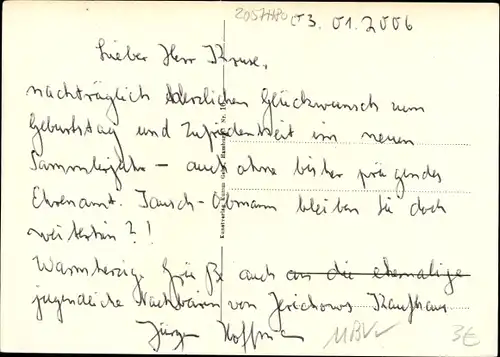 2057480
03.01.2006
Lieber Herr Kruse,
nachträglich Herzlichen Glückwunsch zum
Geburtstag und Zufriedenheit im neuen
Sammlerjahr – auch ohne bisher prägendes
Ehrenamt. Tausch-Obmann bleiben Sie doch
weiterhin?!
Warmherzige Grüße auch an die ehemalige
jugendliche Nachbarin von Jerichows Kaufhaus
Jürgen Hoffmann
3€